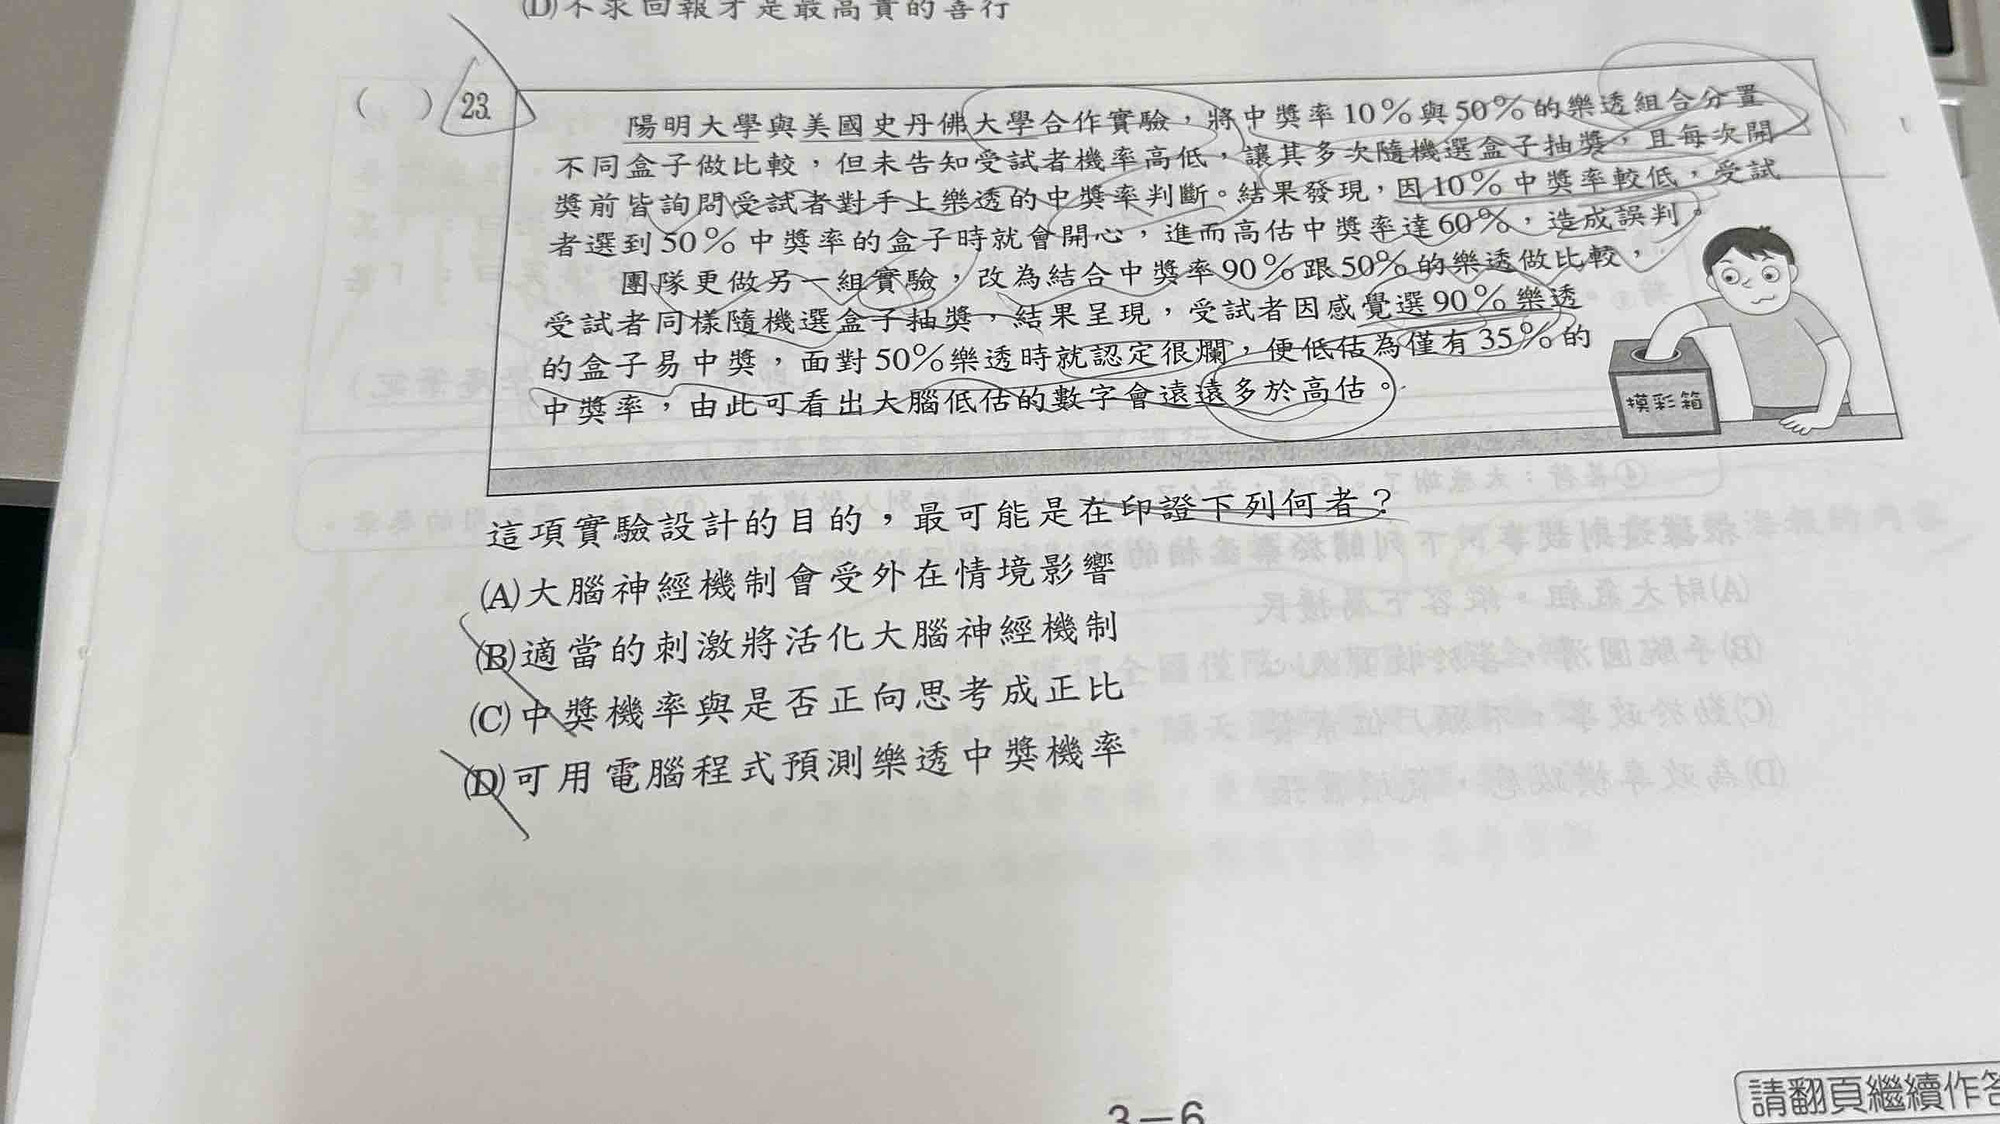 (D)不求回報才是最高貴的善行
(　)23.
陽明大學與美國史丹佛大學合作實驗，將中獎率10%與50%的樂透組合分置
不同盒子做比較，但未告知受試者機率高低，讓其多次隨機選盒子抽獎，且每次開
獎前皆詢問受試者對手上樂透的中獎率判斷。結果發現，因10%中獎率較低，受試
者選到50%中獎率的盒子時就會開心，進而高估中獎率達60%，造成誤判。
團隊更做另一組實驗，改為結合中獎率90%跟50%的樂透做比較，
受試者同樣隨機選盒子抽獎，結果呈現，受試者因感覺選90%樂透
的盒子易中獎，面對50%樂透時就認定很爛，便低估為僅有35%的
中獎率，由此可看出大腦低估的數字會遠遠多於高估。
摸彩箱
這項實驗設計的目的，最可能是在印證下列何者？
(A)大腦神經機制會受外在情境影響
(B)適當的刺激將活化大腦神經機制
(C)中獎機率與是否正向思考成正比
(D)可用電腦程式預測樂透中獎機率
3－6
請翻頁繼續作答